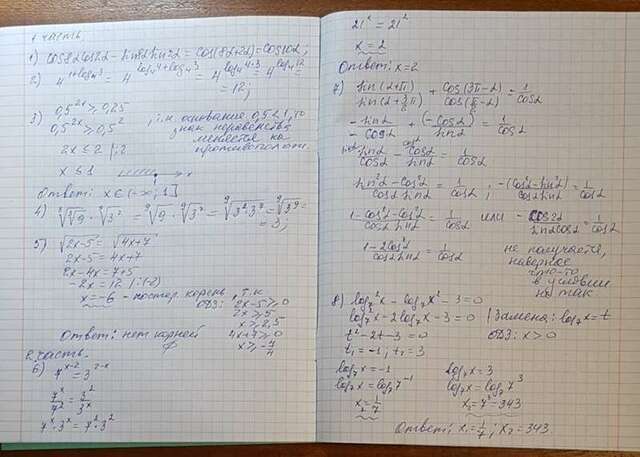 1 часть
1) cos8α cos2α - sin8α sin2α = cos(8α+2α) = cos10α;
2) 4^{1+log_4 3} = 4^{log_4 4 + log_4 3} = 4^{log_4 4·3} = 4^{log_4 12} =
= 12;
3) 0,5^{2x} ≥ 0,25
0,5^{2x} ≥ 0,5^2, т.к. основание 0,5<1, то
знак неравенства
меняется на
противополож.
2x ≤ 2 |:2
x ≤ 1
Ответ: x ∈ (-∞; 1]
= 3;
5) √(2x-5) = √(4x+7)
2x-5 = 4x+7
2x-4x = 7+5
-2x = 12 |:(-2)
x = -6 - посторон. корень, т.к.
ОДЗ: 2x-5 ≥ 0
2x ≥ 5
x ≥ 2,5
4x+7 ≥ 0
x ≥ -7/4
Ответ: нет корней
∅
2 часть.
6) 7^{x-2} = 3^{2-x}
7^x/7^2 = 3^2/3^x
7^x·3^x = 7^2·3^2
21^x = 21^2
x = 2
Ответ: x = 2
7) sin(α+π)/ + cos(3π-α)/ = 1/cosα
-sinα/-cosα + (-cosα)/sinα = 1/cosα
sinα/cosα - cosα/sinα = 1/cosα
sin²α-cos²α/cosα sinα = 1/cosα; -(cos²α-sin²α)/cosα sinα = 1/cosα
1-cos²α-cos²α/cosα sinα = 1/cosα или -cos2α/sinα cosα = 1/cosα
1-2cos²α/cosα sinα = 1/cosα
не получается,
наверное
что-то
в условии
не так
8) log_7^2 x - log_7 x^2 - 3 = 0
log_7^2 x - 2log_7 x - 3 = 0 | Замена: log_7 x = t
t² - 2t - 3 = 0 ОДЗ: x > 0
t_1 = -1; t_2 = 3
log_7 x = -1 log_7 x = 3
log_7 x = log_7 7^{-1} log_7 x = log_7 7^3
x = 1/7 x = 7^3 = 343
Ответ: x_1 = 1/7; x_2 = 343.